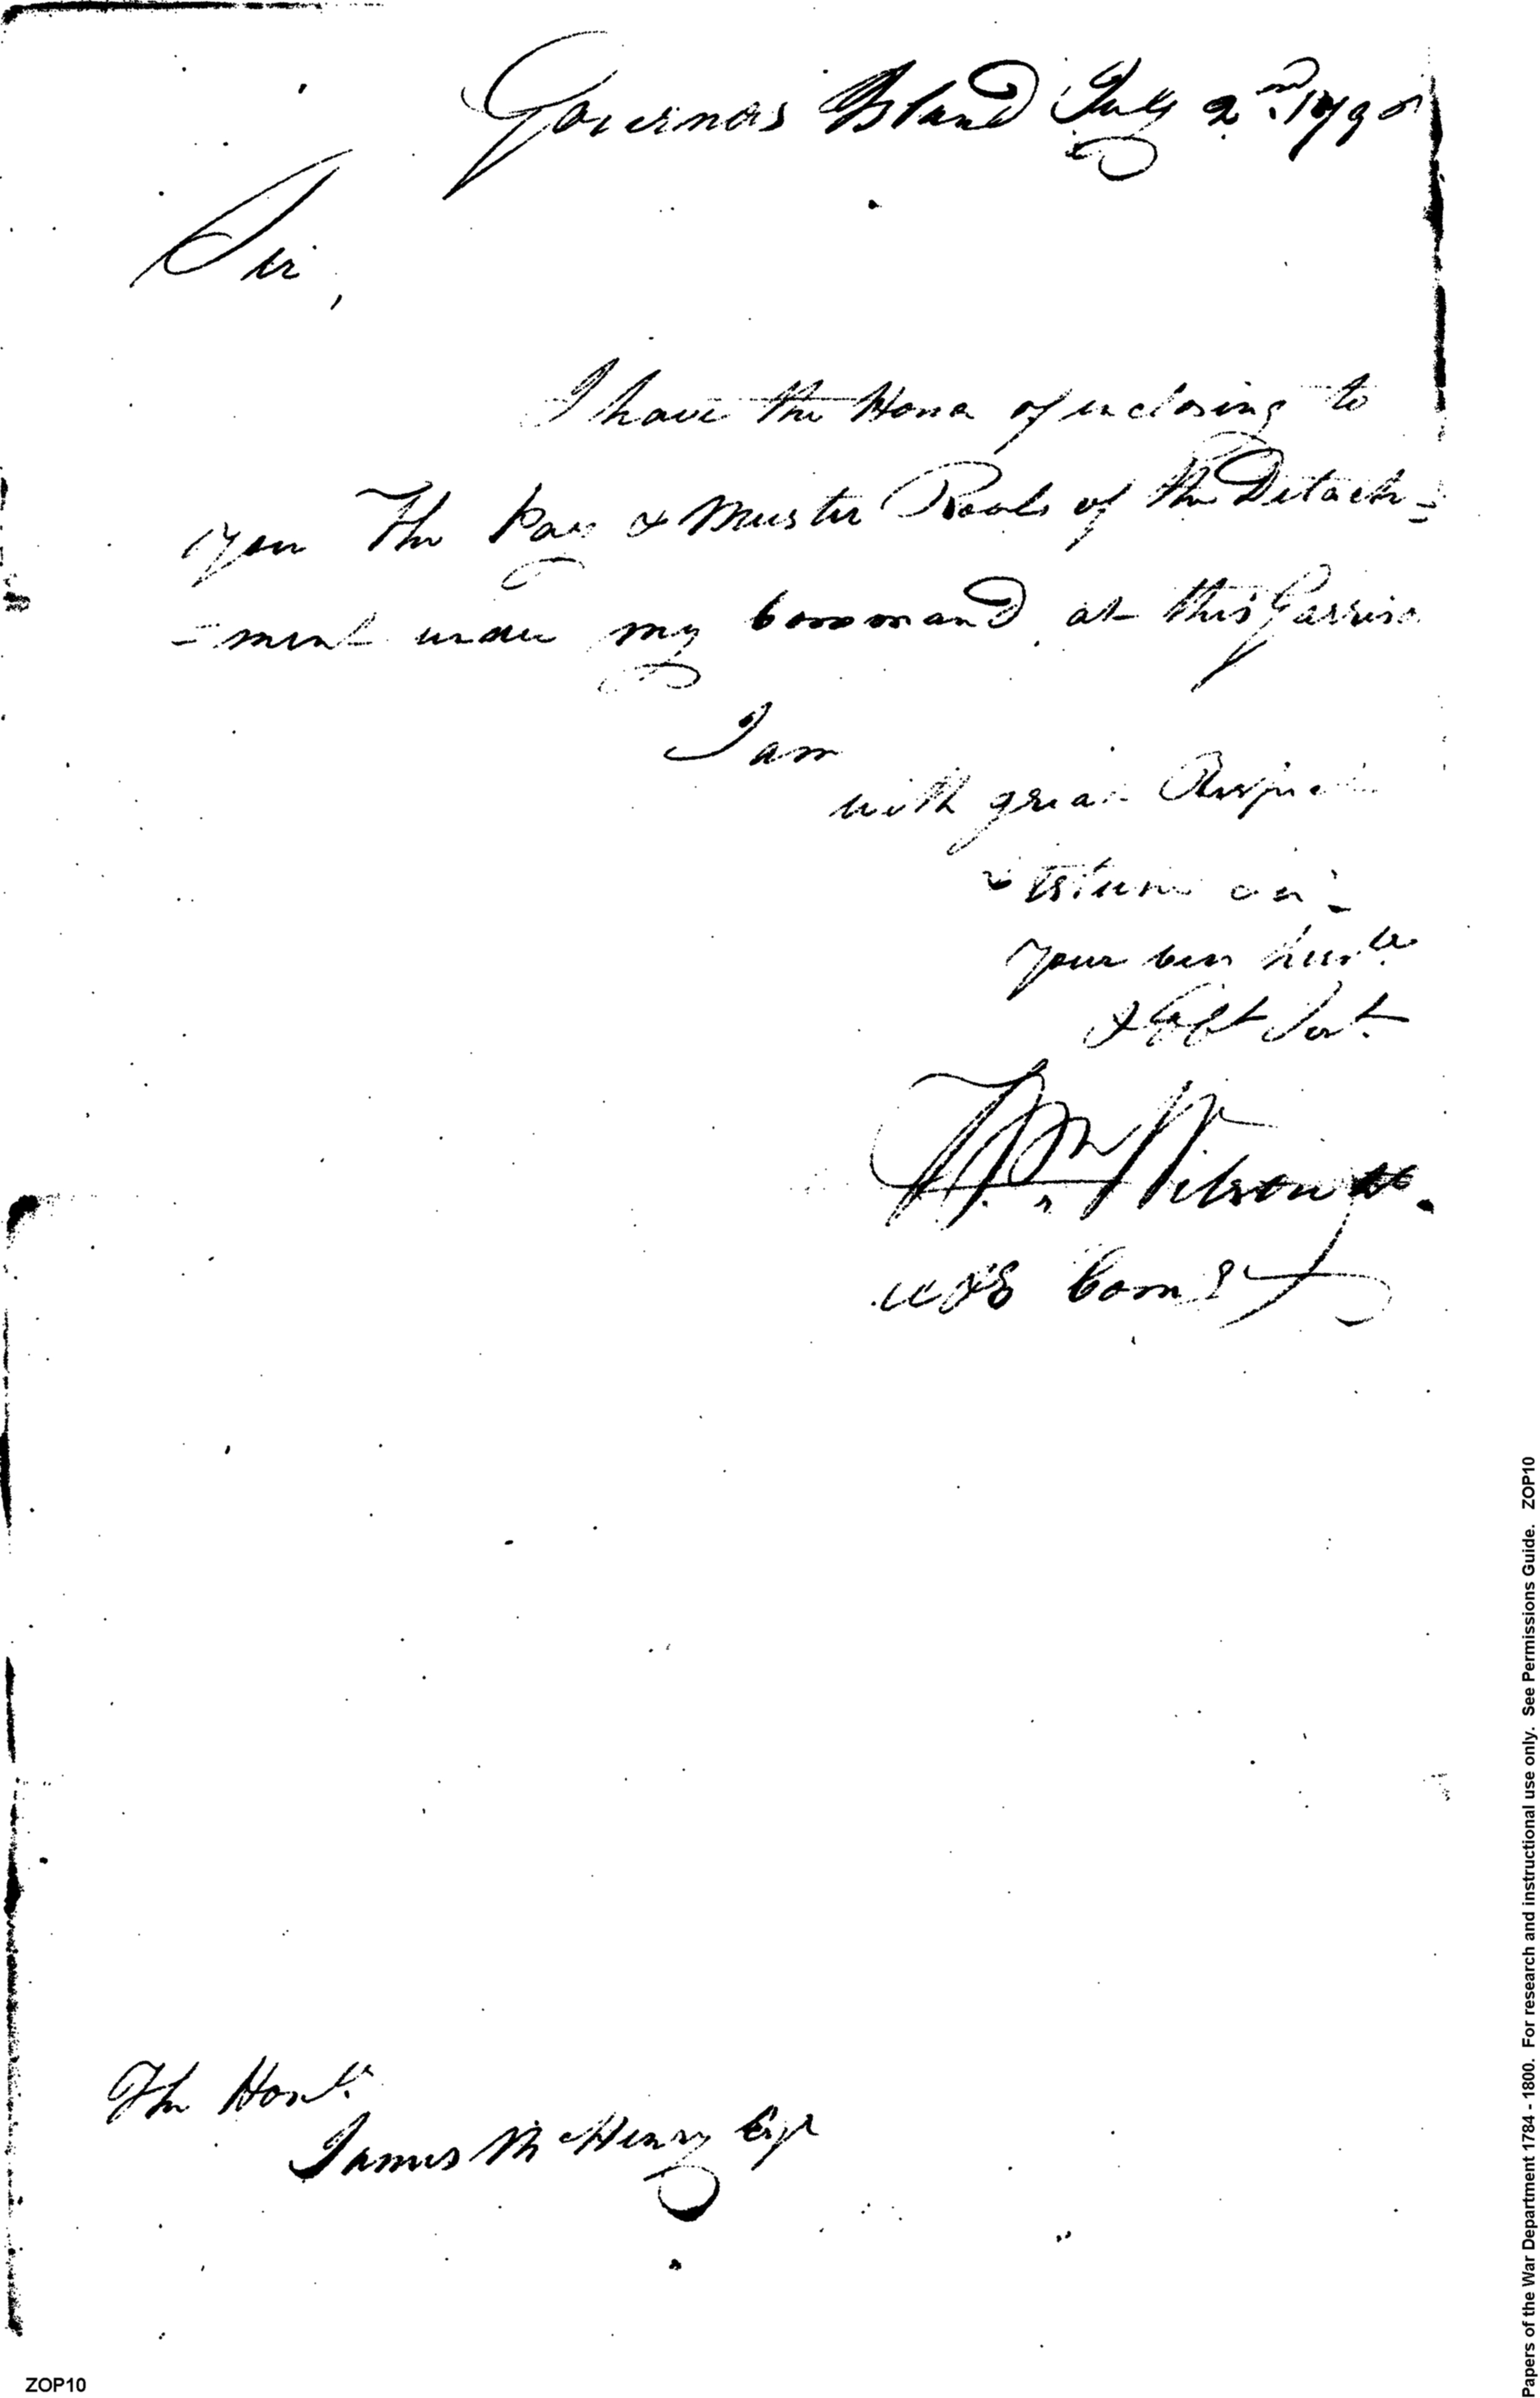 Governors Island July 2nd. 179
Sir,
I have the Honor of inclosing to
you The Pay & Muster Rools of the Detach=
=ment under my Command, at this Garriso
I am
with great Respect
& Esteem
your very humle.
& Obt Servt.
Wm. Wilson Lt.
Comdt
The Honle.
James McHenry Esqr
ZOP10
Papers of the War Department 1784 - 1800. For research and instructional use only. See Permissions Guide. ZOP10